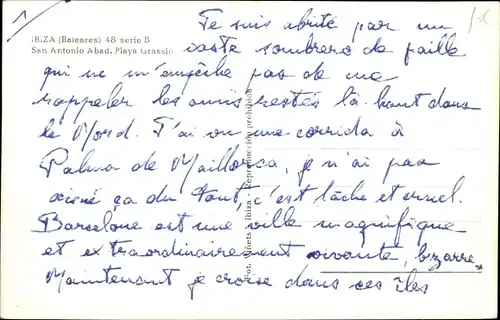 IBIZA (Baleares) 48 serie B
San Antonio Abad. Playa Grassio
Je suis abrité par un
vaste sombrero de paille
qui ne m'empêche pas de me
rappeler les amis restés là haut dans
le Nord. J'ai vu une corrida à
Palma de Maillorca, je n'ai pas
aimé ça du tout, c'est lâche et cruel.
Barcelone est une ville magnifique
et extraordinairement vivante, bizarre.
Maintenant je croise dans ces îles
Fot. Viñets Ibiza - Reproducción prohibida